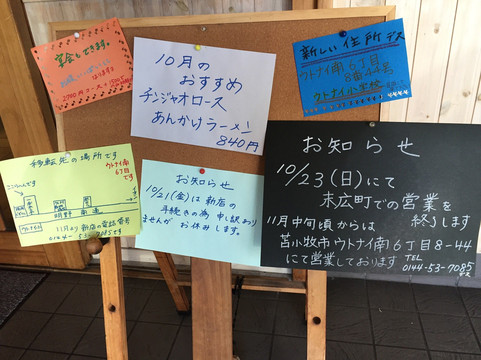 宴会もできます。
10月の
おすすめ
チンジャオロース
あんかけラーメン
840円
新しい住所デス
ウトナイ南6丁目
8番44号
ウトナイ小学校
移転先の場所です
ウトナイ南
6丁目
です
ここらへんです
明野
11月より新店の電話番号
0144-53-7085です
お知らせ
10/21(金)は新店の
手続きの為 申し訳あり
ませんが お休みします。
お知らせ
10/23(日)にて
末広町での営業を
終了します
11月中旬頃からは
苫小牧市ウトナイ南6丁目8-44
にて営業しております
TEL
0144-53-7085